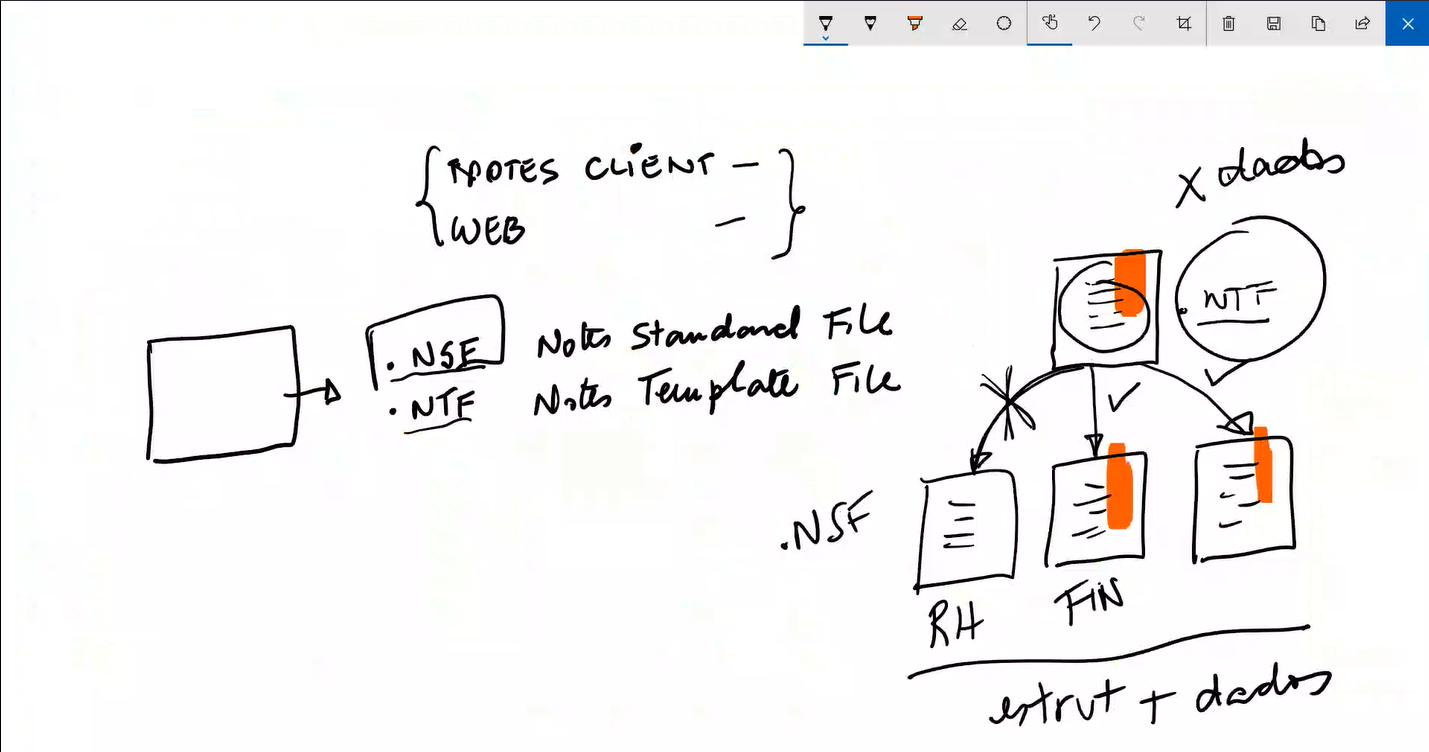 NOTES CLIENT –
WEB –
.NSF Notes Standard File
.NTF Notes Template File
X dados
.NTF
.NSF
RH
FIN
estrut + dados